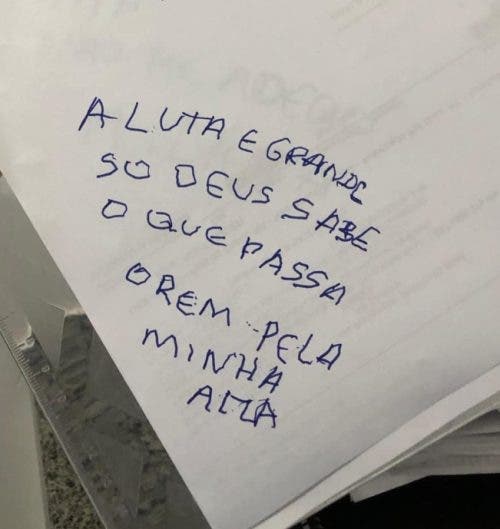 A LUTA E GRANDE
SO DEUS SABE
O QUE PASSA
OREM PELA
MINHA
ALMA